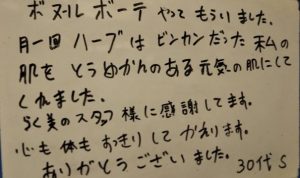 ボヌルボーテ やってもらいました。
月一回 ハーブは ビンカンだった 私の
肌を とうめいかんのある 元気の肌にして
くれました。
らく美のスタッフ様に感謝してます。
心も体も すっきりして かえります。
ありがとうございました。
30代 S